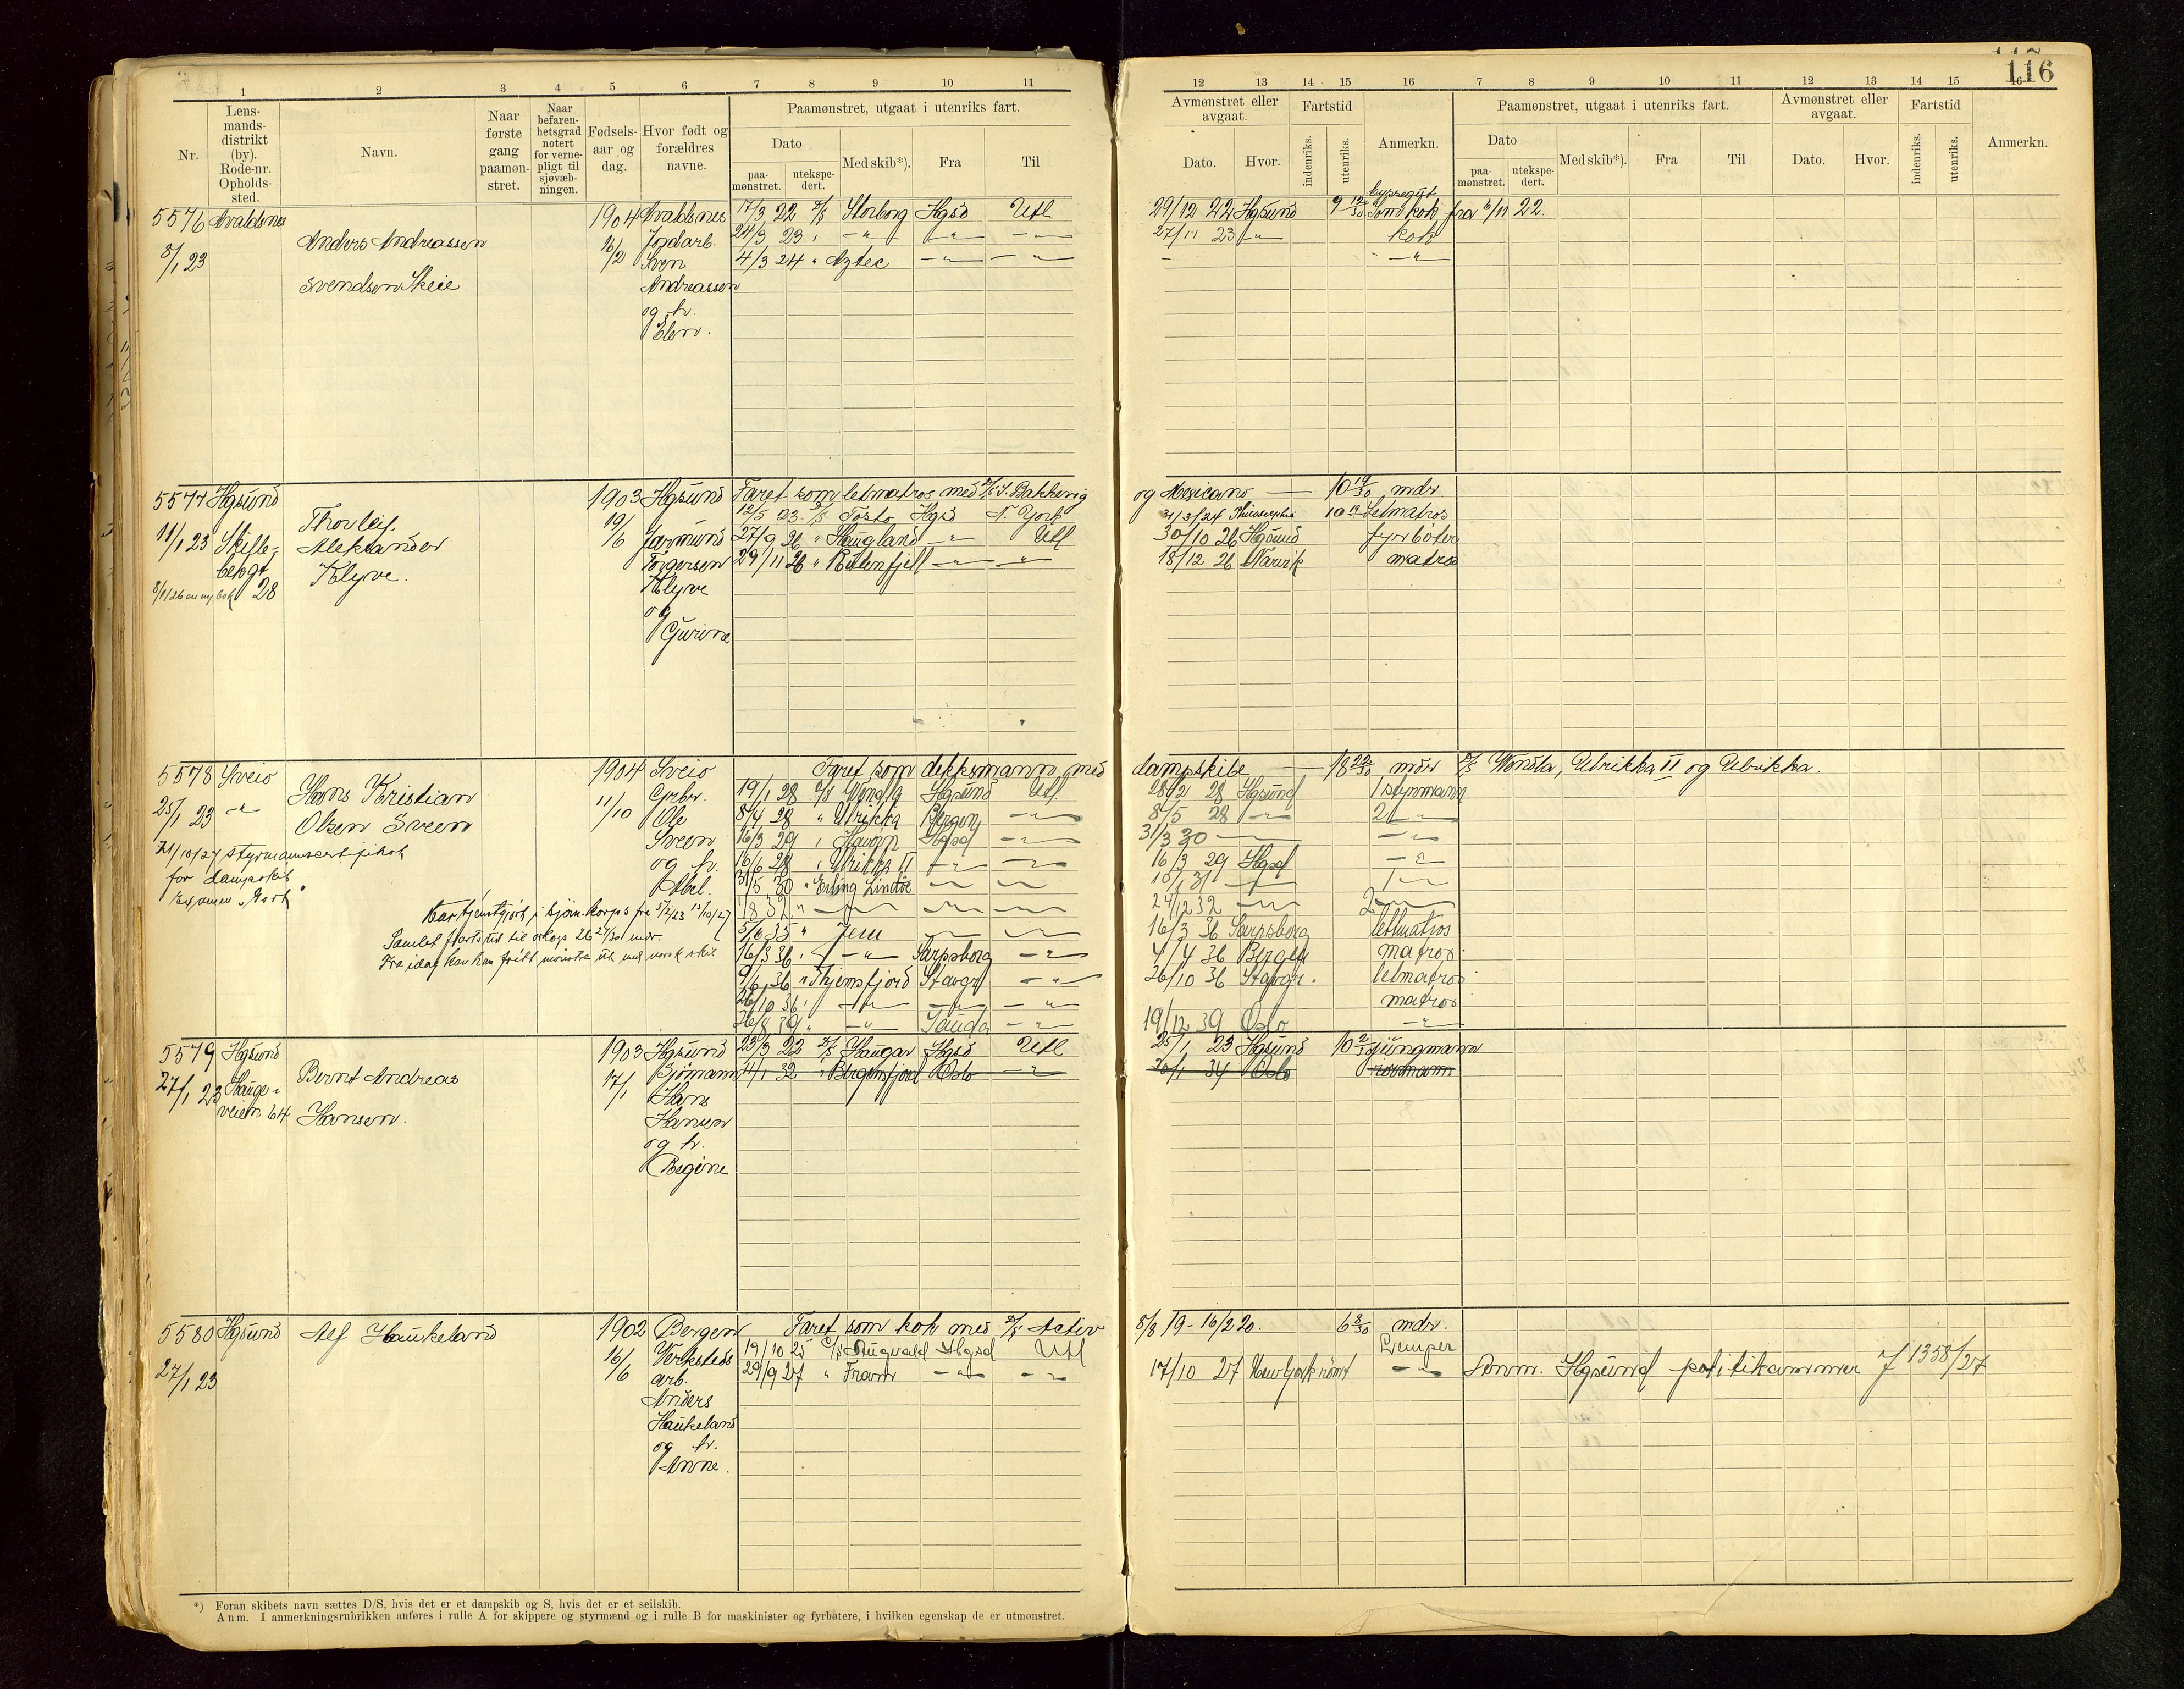 116
1 2 3 4 5 6 7 8 9 10 11
12 13 14 15 16 7 8 9 10 11 12 13 14 15 16
Nr.
Lens-
mands-
distrikt
(by).
Rode-nr.
Opholds-
sted.
Navn.
Naar
første
gang
paamøn-
stret.
Naar
befaren-
hetsgrad
notert
for verne-
pligt til
sjøvæb-
ningen.
Fødsels-
aar og
dag.
Hvor født og
forældres
navne.
Paamønstret, utgaat i utenriks fart.
Dato
paa-
mønstret.
utekspe-
dert.
Med skib*).
Fra
Til
Avmønstret eller
avgaat.
Dato.
Hvor.
Fartstid
indenriks.
utenriks.
Anmerkn.
Paamønstret, utgaat i utenriks fart.
Dato
paa-
mønstret.
utekspe-
dert.
Med skib*).
Fra
Til
Avmønstret eller
avgaat.
Dato.
Hvor.
Fartstid
indenriks.
utenriks.
Anmerkn.
5576 Avaldsnes
8/1 23
Anders Andreassen
Svendsen Skeie
1904
16/2
Avaldsnes
Jordarb.
Sven
Andreassen
og h.
Elen.
17/3 22 D/S Storborg Hgsd Utl
24/3 23 " -"- -"- -"-
4/3 24 " Aztec -"- -"-
29/12 22 Hgsund 9 12/30 Som kok fra 6/11 22.
27/11 23 -"- kok
-"-
5577 Hgsund
11/1 23 Skille-
bekgt
28
Thorleif
Aleksander
Klyve.
1903
19/6
Hgsund
Jarmund
Torgersen
Klyve
og
Gurine
Faret som letmatros med D/S J. Bakkevig
og Mexicano — 10 19/30 mdr.
12/5 23 D/S Tosto Hgsd N. York
31/3/24 Philadelphia 10 19 Letmatros
27/9 26 " Haugland -"- Utl
30/10 26 Hgsund fyrbøter
29/11 26 " Rutenfjell -"- -"-
18/12 26 Narvik matros
5578 Sveio
25/1 23 -"-
Hans Kristian
Olsen Sveen
21/10/27 styrmannscertifikat
for dampskib
Examen "Gort"
Har tjenstgjort i sjøm. korps fra 5/2/23 15/10/27
Samlet fartstid til oslogs 26 27/30 mdr.
Fra idag kan han fritt mønstre ut med norsk skib
1904
11/10
Sveio
Grbr.
Ole
Sveen
og h.
Abel.
Faret som dekksmann med
dampskibe — 18 22/30 mdr D/S Wonsla, Ulrikka II og Ulrikka.
19/1 28 D/S Wendla Hgsund Utl.
28/2 28 Hgsund 1 styrmann
8/4 28 " Ulrikka Bergen -"-
8/5 28 -"- 2 -"-
16/3 29 " Havørn Hgsd -"-
31/3 30 -"-
16/6 28 " Ulrikka II -"- -"-
16/3 29 Hgsd -"-
31/5 30 " Erling Lindøe
10/1 31
1/8 32 "
24/12 32 2 -"-
3/6 35 " Jem
16/3 36 Sarpsborg letmatros
16/3 36 " -"- Sarpsborg -"-
4/4 36 Bergen matros
9/6 36 " Thjemsfjord Stavgr -"-
26/10 36 Stavgr. letmatros
26/10 36 " -"- -"- -"-
matros
26/8 39 " -"- Sauda -"-
19/12 39 Oslo -"-
5579 Hgsund
27/1 23 Hauge-
veien 64
Bernt Andreas
Hansen.
1903
17/1
Hgsund
Sjømann
Hans
Hansen
og h.
Regine
23/3 22 D/S Haugar Hgsd Utl
25/1 23 Hgsund 10 2/30 jungmann
11/1 32 " Bergensfjord Oslo -"-
20/1 34 Oslo rormann
5580 Hgsund
27/1 23
Alf Haukeland
1902
16/6
Bergen
Verksteds
arb.
Anders
Haukeland
og h.
Anne.
Faret som kok med D/S Activ
8/8 19 - 16/2 20. 6 8/30 mdr.
19/10 25 D/S Rugvald Hgsd Utl
Lemper
29/9 27 " Fram -"- -"-
17/10 27 New York rømt -"- Anm. Hgsund politikammer J 1358/27
*) Foran skibets navn sættes D/S, hvis det er et dampskib og S, hvis det er et seilskib.
Anm. I anmerkningsrubrikken anføres i rulle A for skippere og styrmænd og i rulle B for maskinister og fyrbøtere, i hvilken egenskap de er utmønstret.